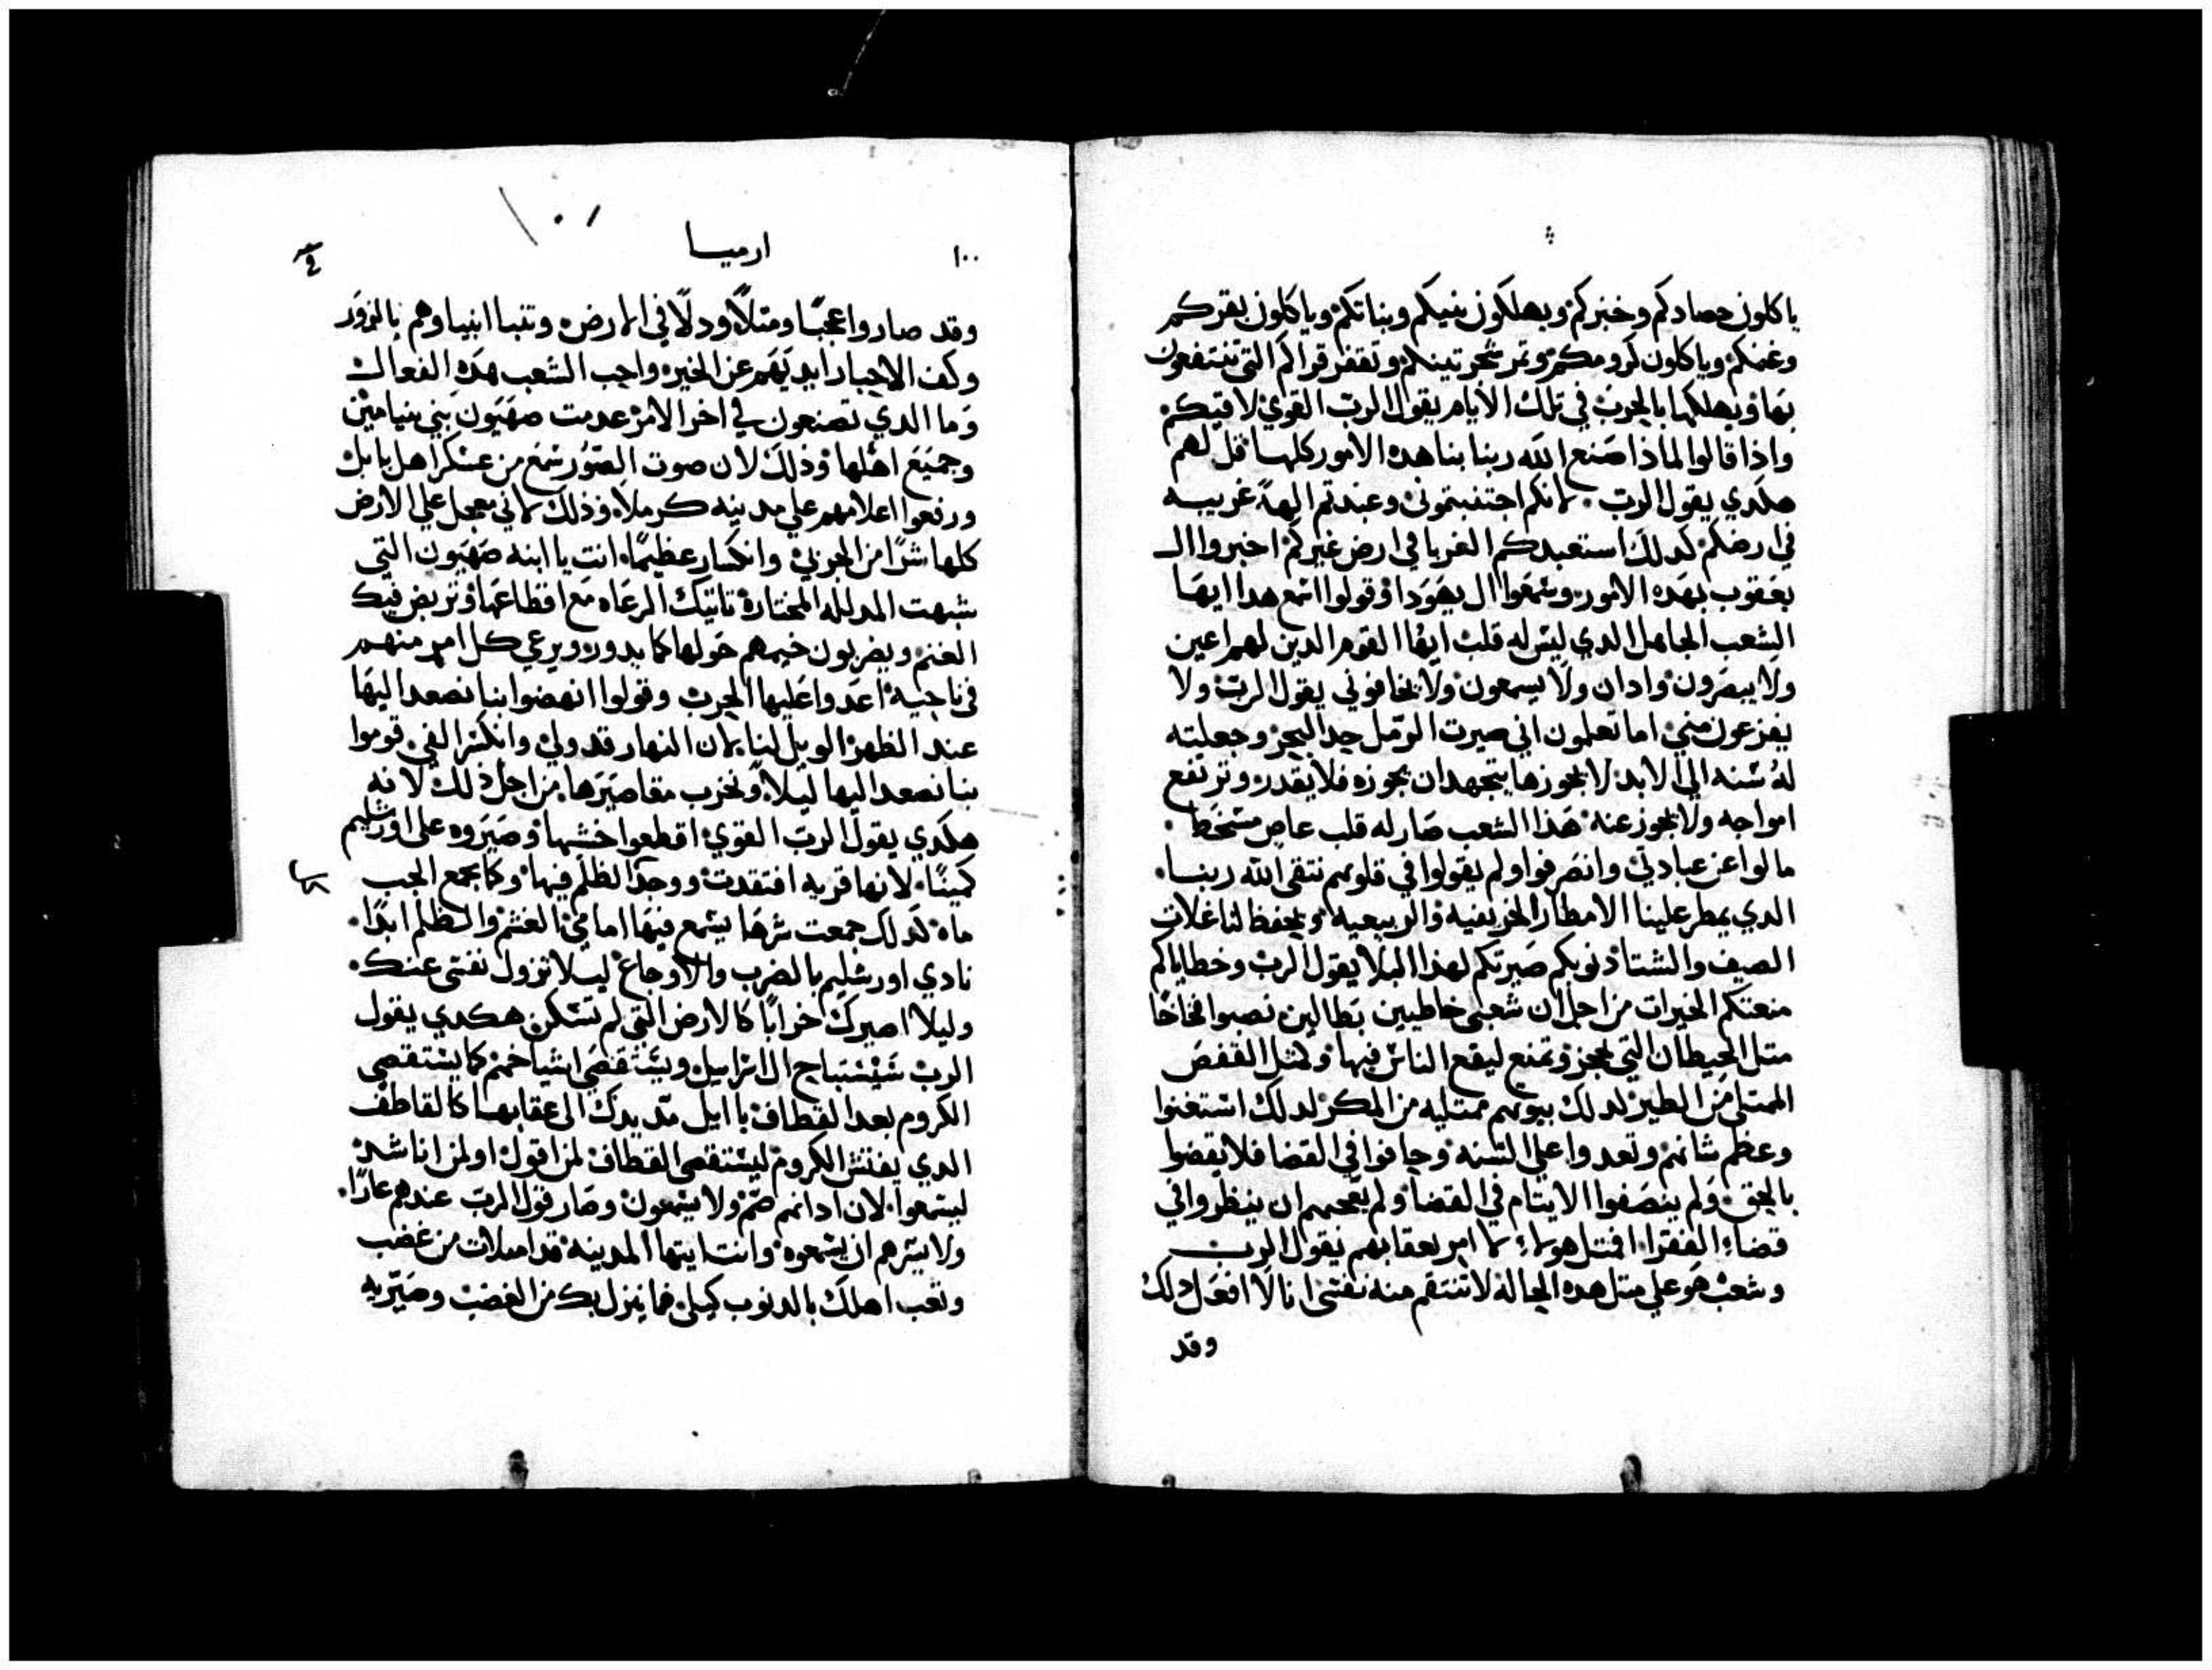 ياكلون حصادكم وخبزكم ويهلكون بنيكم وبناتكم وياكلون بقركم
وغنمكم وياكلون كرومكم وثمر شجر تينكم وتقفر قراكم التي تنتفعون
بها ويهلكها بالحرب في تلك الايام يقول الرب القوي لا فنيكم
واذا قالوا لماذا صنع الله ربنا بنا هده الامور كلها قل لهم
هكدي يقول الرب لانكم اجتنبتموني وعبدتم الهة غريبه
في ارضكم كدلك استعبدكم الغربا في ارض غيركم اخبروا ال
يعقوب بهده الامور وسمعوا ال يهودا وقولوا اسمع هدا ايها
الشعب الجاهل الدي ليس له قلب ايها القوم الدين لهم اعين
ولا يبصرون وادان ولا يسمعون ولا يخافوني يقول الرب ولا
يفزعون مني اما تعلمون اني صيرت الرمل حد البحر وجعلته
له سنه الي الابد لا يجوزها يتجهد ان يجوزه فلا يقدر وترتفع
امواجه ولا يجوز عنه هذا الشعب صار له قلب عاص مسخط
مالوا عن عبادتي وانصرفوا ولم يقولوا في قلوبهم نتقي الله ربنا
الدي يمطر علينا الامطار الخريفيه والربيعيه ويحفظ لنا غلات
الصيف والشتا ذنوبكم صيرتكم لهذا البلا يقول الرب وخطاياكم
منعتكم الخيرات من اجل ان شعبي خاطيين بطالين نصبوا فخاخا
مثل الحيطان التي تحجز وتمنع ليقع الناس فيها وكمثل القفص
الممتلي من الطير كدلك بيوتهم ممتليه من المكر لدلك استغنوا
وعظم شانهم وتعدوا علي السنه وحافوا في القضا فلا يقضوا
بالحق ولم ينصفوا الايتام في القضا ولم يعجبهم ان ينظروا في
قضاء الفقرا افمثل هولاء لا امر بعقابهم يقول الرب
وشعب هو علي مثل هده الحاله لا تنتقم منه نفسي انا لا افعل دلك
وقد
١٠٠
ارميا
وقد صاروا عجبا ومثلا ودلا في الارض وتنبا انبياوهم بالزور
وكف الاحبار ايديهم عن الخير واحب الشعب هده الفعال
وما الدي تصنعون في اخر الامر عدمت صهيون بني بنيامين
وجميع اهلها وذلك لان صوت الصور سمع من عسكر اهل بابل
ورفعوا اعلامهم علي مدينه كرملا وذلك لاني معجل علي الارض
كلها شرا من الجربي وانكسار عظيما انت يا ابنه صهيون التي
شبهت المدلله المختارة تاتيك الرعاه مع اقطاعها وتربض فيك
الغنم ويضربون خيمهم حولها كما يدور ويرعي كل امر منهم
في ناحيه اعدوا عليها الحرب وقولوا انهضوا بنا نصعد اليها
عند الظهر الويل لنا لان النهار قد ولي وانكسر الفي قوموا
بنا نصعد اليها ليلا ونخرب مقاصيرها من اجل ذلك لانه
هكدي يقول الرب القوي اقطعوا خشبها وصيروه علي اورشليم
كمينا لانها قريه افتقدت ووجد الظلم فيها وكما يجمع الجب
ماه كدلك جمعت شرها يسمع فيها امامي الغشم والظلم ابدا
نادي اورشليم بالضرب والاوجاع ليلا تزول نفسي عنك
وليلا اصيرك خرابا كالارض التي لم تسكن هكدي يقول
الرب سيستباح ال اسراييل ويستقصي اشياخهم كما يستقصي
الكروم بعد القطاف يا ايل مد يدك الي عقابها كالقاطف
الدي يفتش الكروم ليستقصي القطاف لمن اقول او لمن اناشد
ليسمعوا لان ادانهم صم ولا يسمعون وصار قول الرب عندهم عارا
ولا يسرهم ان يسمعوه وانت ايتها المدينه قد امتلات من غضب
وتعب اهلك بالدنوب كيلي فما ينزل بك من الغضب وصيريه